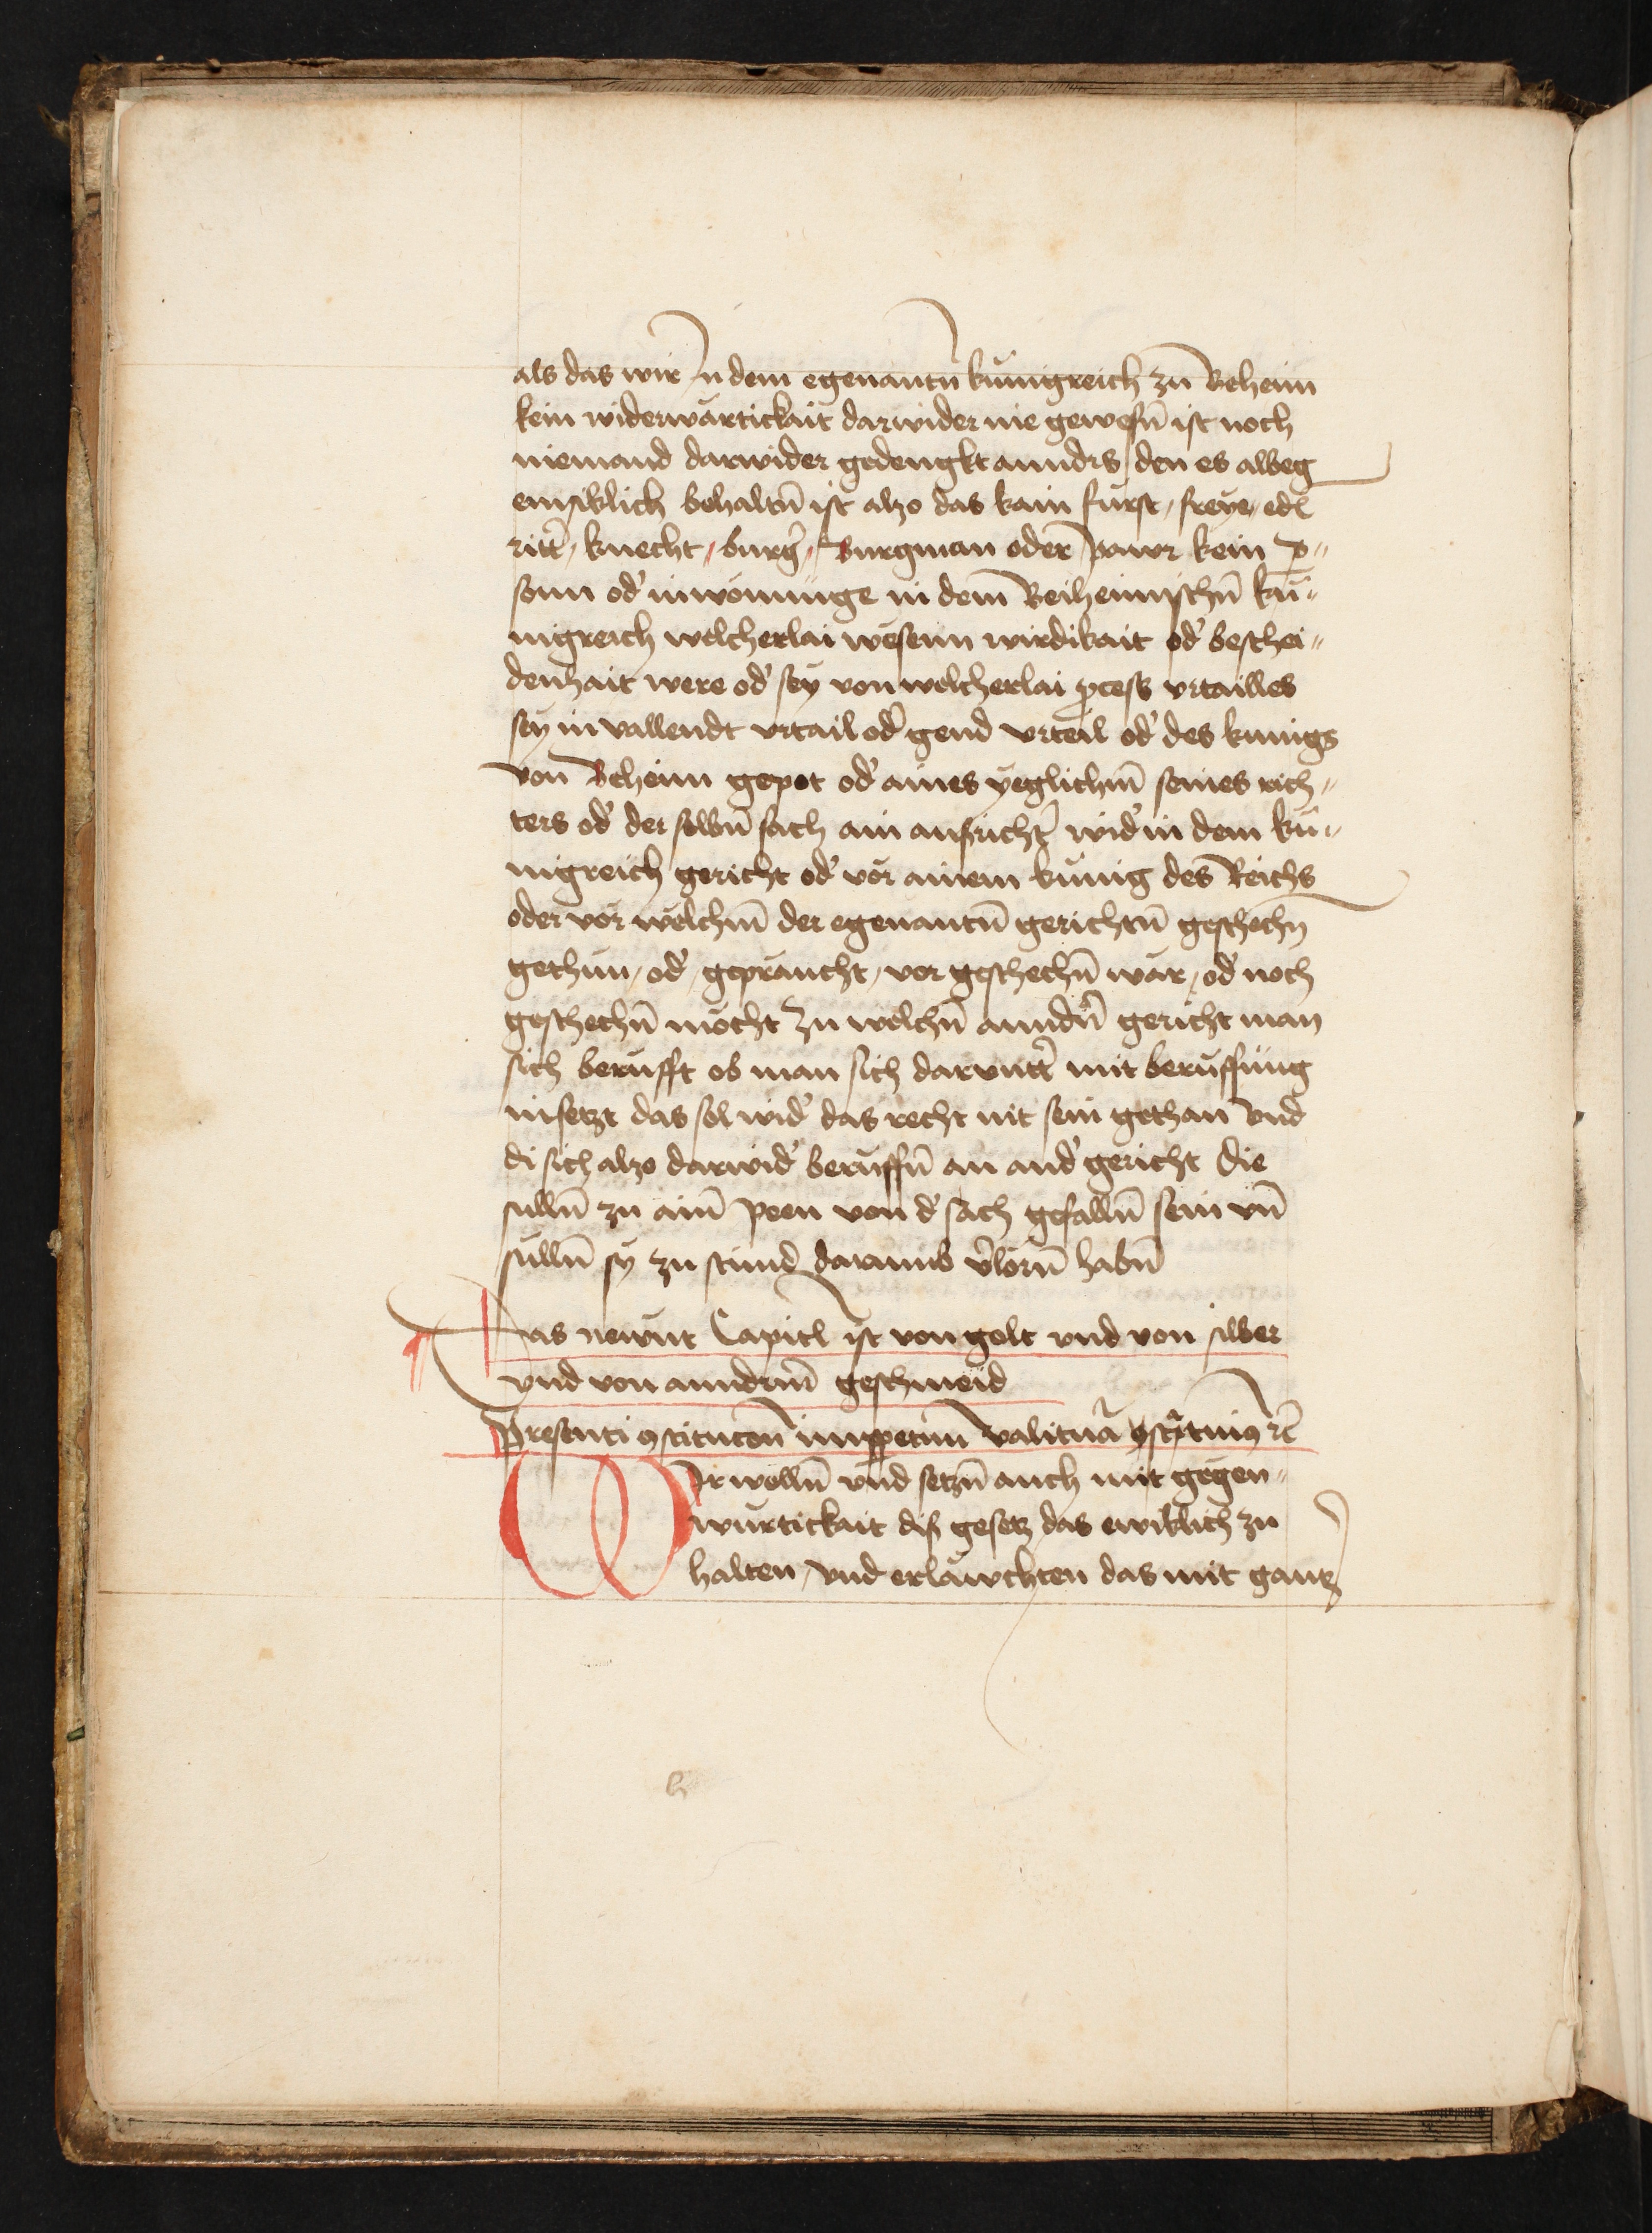 als das wir in dem egenantn̄ kunigreich zu Beheim
kein widerwärtickait darwider nie gewesn̄ ist noch
niemand darwider gedengkt anndrs den es albeg
ewiklich behaltn̄ ist alzo das kain fürst, freye, edl
ritt͛, knecht, burg͛, Burgman oder pawr kein p̱〃
sonn od͛ inwonunge in dem Beiheimischn̄ ku〃
nigreich welcherlai wesenn wirdikait od͛ beschei〃
denhait were od͛ sey von welcherlai ꝓcess vrtailles
sey in vallendt vrtail od͛ gend vrteil od͛ des kunigs
von Beheim gepot od͛ aines yeglichm̄ seines rich〃
ters od͛ der selbn̄ sach ain ausricht͛ wid͛ in dem ku〃
nigreich gericht od͛ vor ainem kunig des Reichs
oder vor welchm̄ der egenantn̄ gerichtn̄ geschechn̄
gethun, od͛, gepraucht, vor geschechn̄ war, od͛ noch
geschechn̄ mocht zu welchn̄ anndn̄͛ gericht man
sich berufft ob man sich darvntt͛ mit beruffung
insetzt das sol wid͛ das recht nit sein gethan vnd
di sich alzo darwid͛ beruffn̄ an and͛ gericht die
sulln̄ zu aim̄ peen von d͛ sach gefalln̄ sein vn̄
sulln̄ sy zu stund darumb v͛lorn̄ habn̄
Das newnt Capitl ist von golt vnd von silber
vnd von anndrm̄ geschmeid
Presenti ꝯstitucōn inꝑpetuū valitura ꝯstituimꝰ rc̄
Wir wolln̄ vnd setzn̄ auch mit gegen〃
wurtickait diß gesetz das ewiklich zu
halten, vnd erlawchten das mit gantz